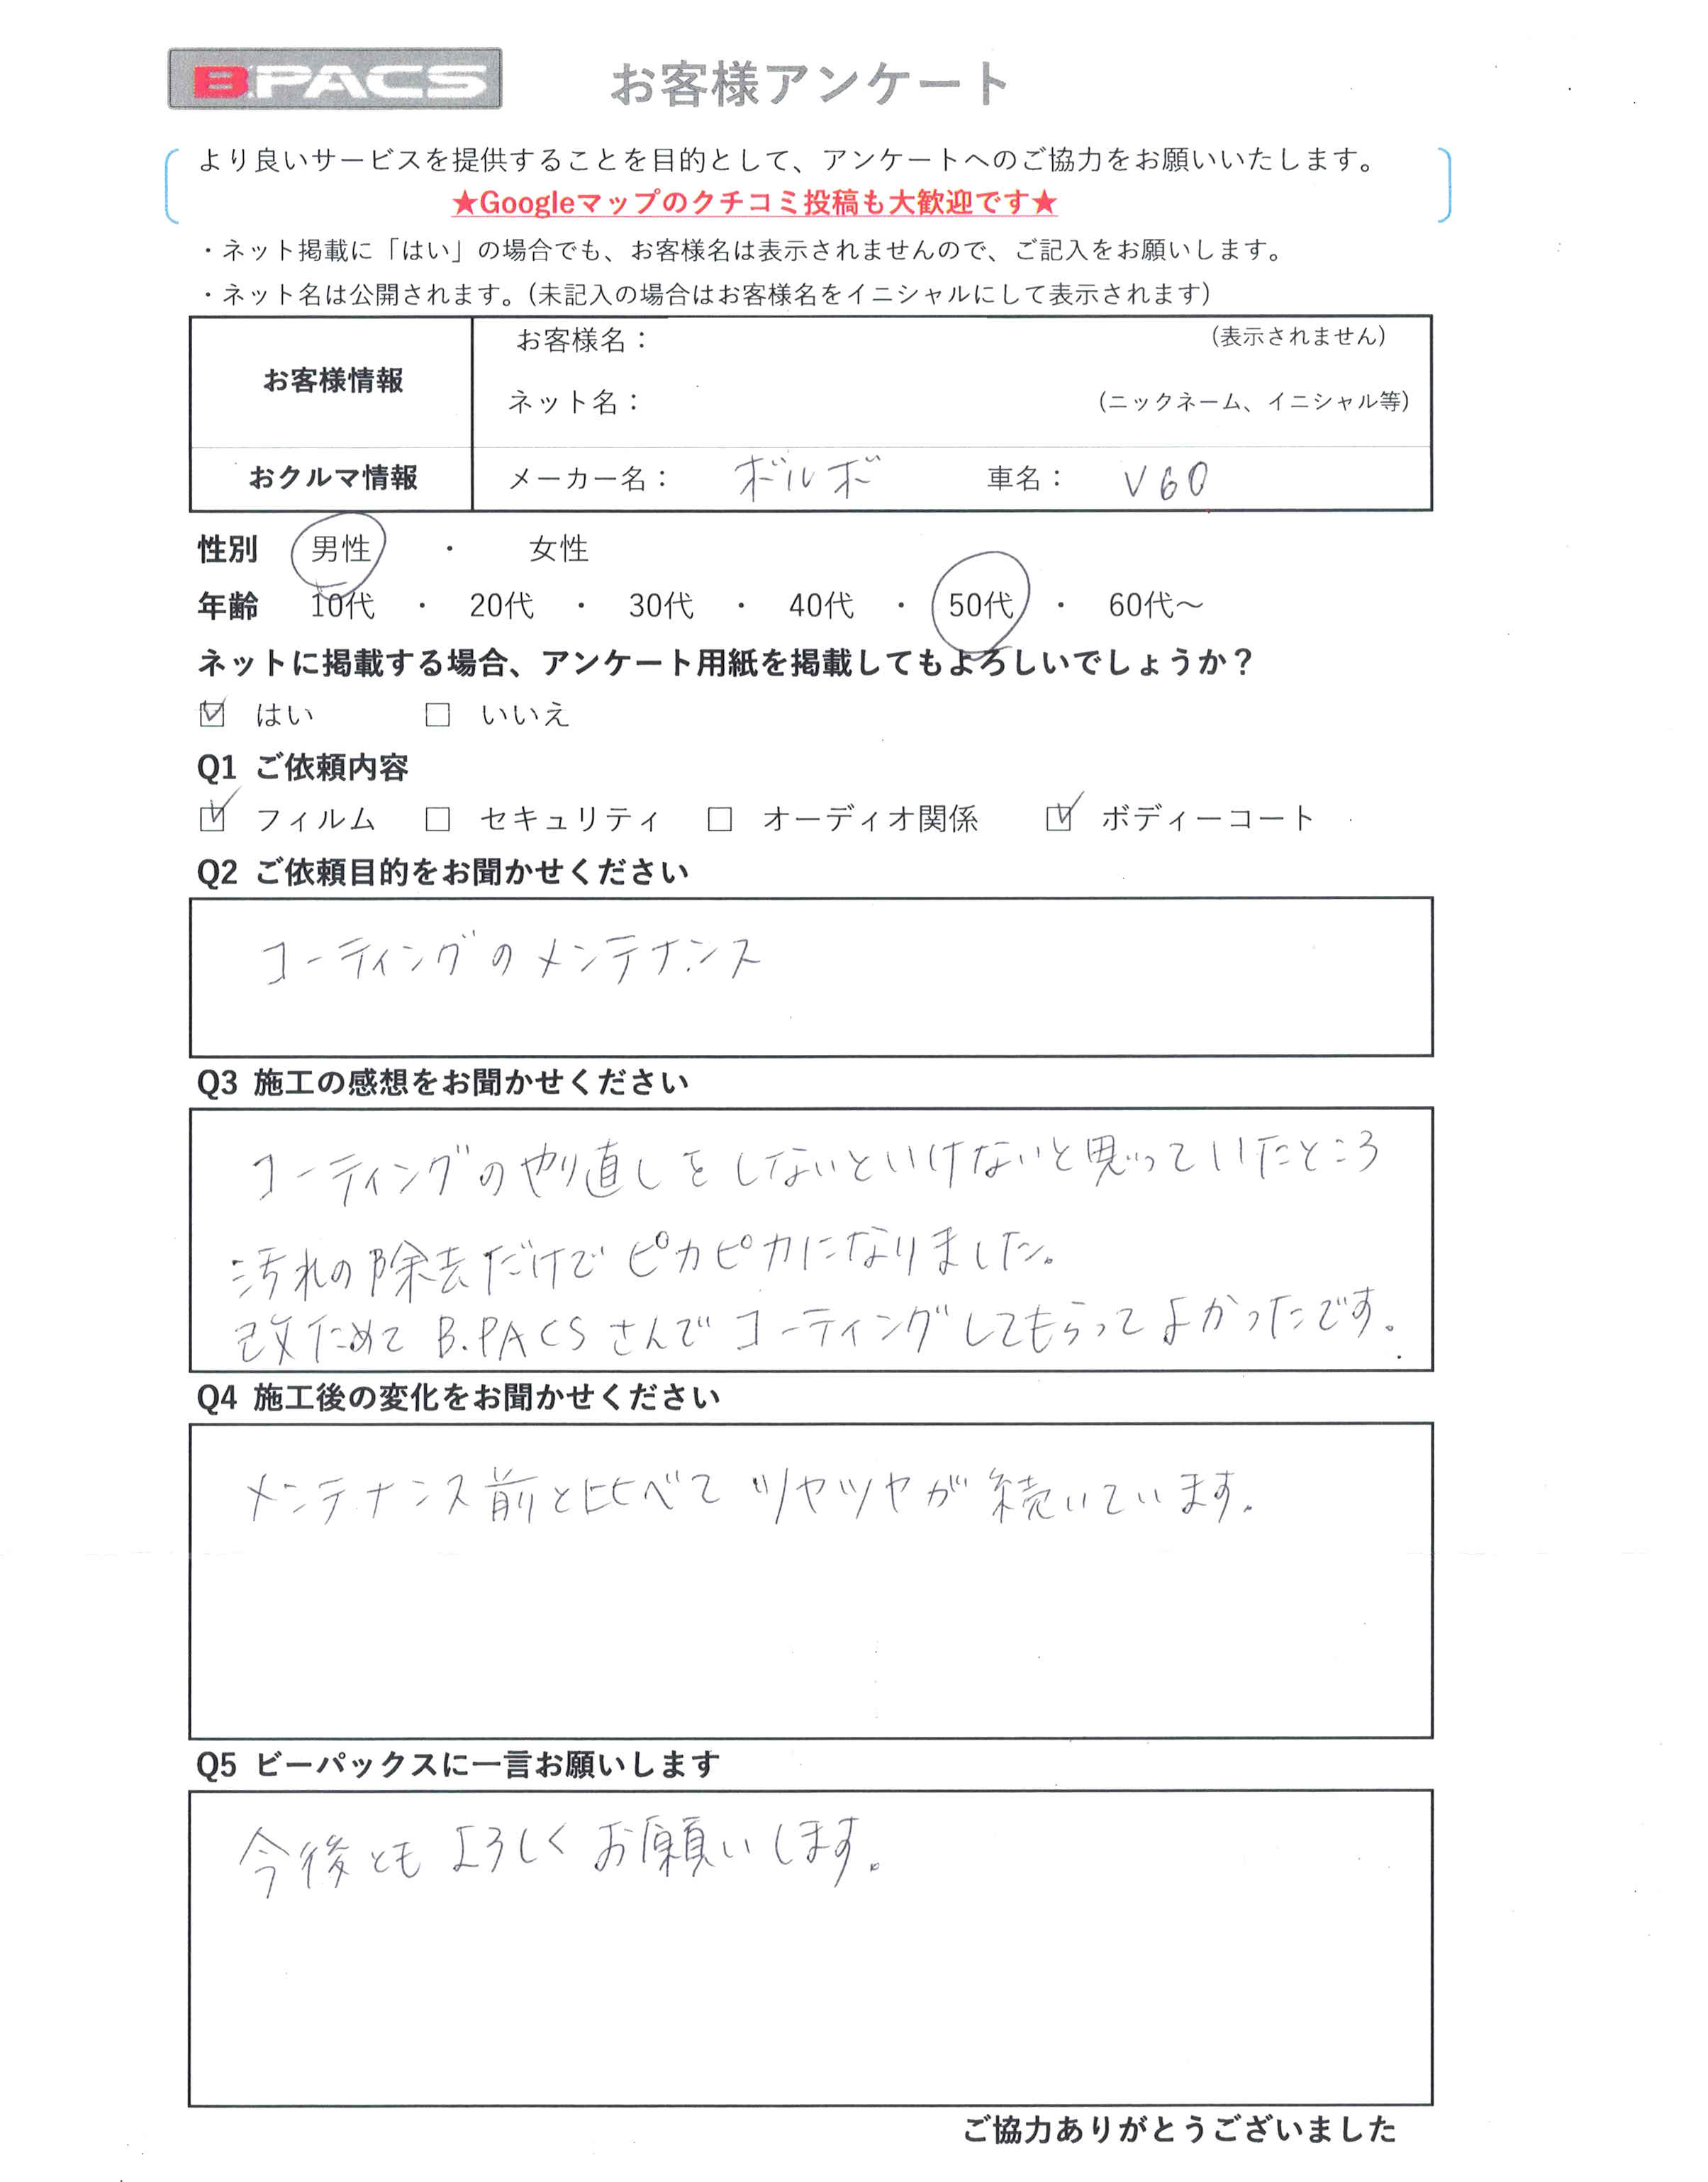 B.PACS お客様アンケート
より良いサービスを提供することを目的として、アンケートへのご協力をお願いいたします。
★Googleマップのクチコミ投稿も大歓迎です★
・ネット掲載に「はい」の場合でも、お客様名は表示されませんので、ご記入をお願いします。
・ネット名は公開されます。(未記入の場合はお客様名をイニシャルにして表示されます)
お客様情報 お客様名： (表示されません)
ネット名： (ニックネーム、イニシャル等)
おクルマ情報 メーカー名： ボルボ 車名： V60
性別 男性 ・ 女性
年齢 10代 ・ 20代 ・ 30代 ・ 40代 ・ 50代 ・ 60代～
ネットに掲載する場合、アンケート用紙を掲載してもよろしいでしょうか？
☑ はい □ いいえ
Q1 ご依頼内容
☑ フィルム □ セキュリティ □ オーディオ関係 ☑ ボディーコート
Q2 ご依頼目的をお聞かせください
コーティングのメンテナンス
Q3 施工の感想をお聞かせください
コーティングのやり直しをしないといけないと思っていたところ
汚れの除去だけでピカピカになりました。
改ためて B.PACSさんでコーティングしてもらってよかったです。
Q4 施工後の変化をお聞かせください
メンテナンス前と比べてツヤツヤが続いています。
Q5 ビーパックスに一言お願いします
今後ともよろしくお願いします。
ご協力ありがとうございました